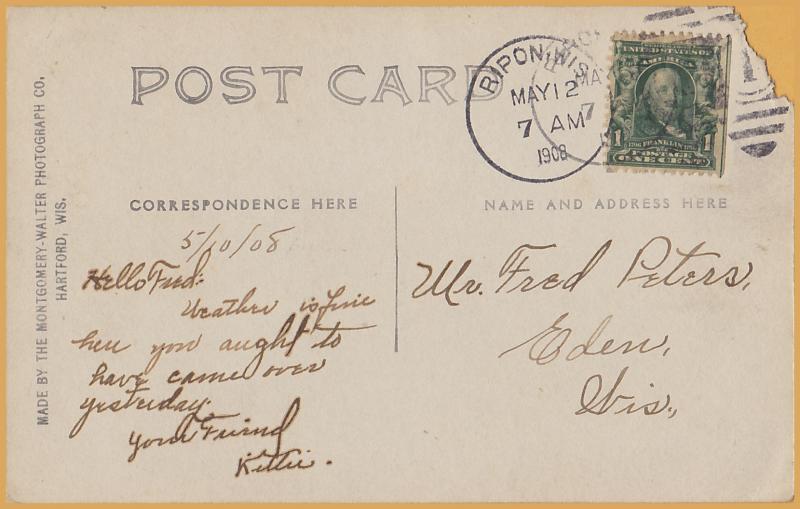 POST CARD
RIPON, WIS.
MAY 12
7 AM
1908
MAY
7
UNITED STATES OF
AMERICA
1 FRANKLIN 1
POSTAGE
ONE CENT
CORRESPONDENCE HERE
NAME AND ADDRESS HERE
MADE BY THE MONTGOMERY-WALTER PHOTOGRAPH CO.
HARTFORD, WIS.
5/10/08
Hello Fred:
Weather is fine
here you aught to
have came over
yesterday.
your Friend
Kittie.
Mr. Fred Peters,
Eden,
Wis.,